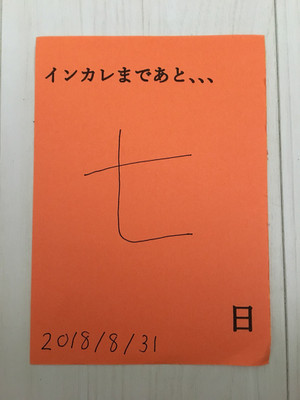 インカレまであと、、、
七
日
2018/8/31